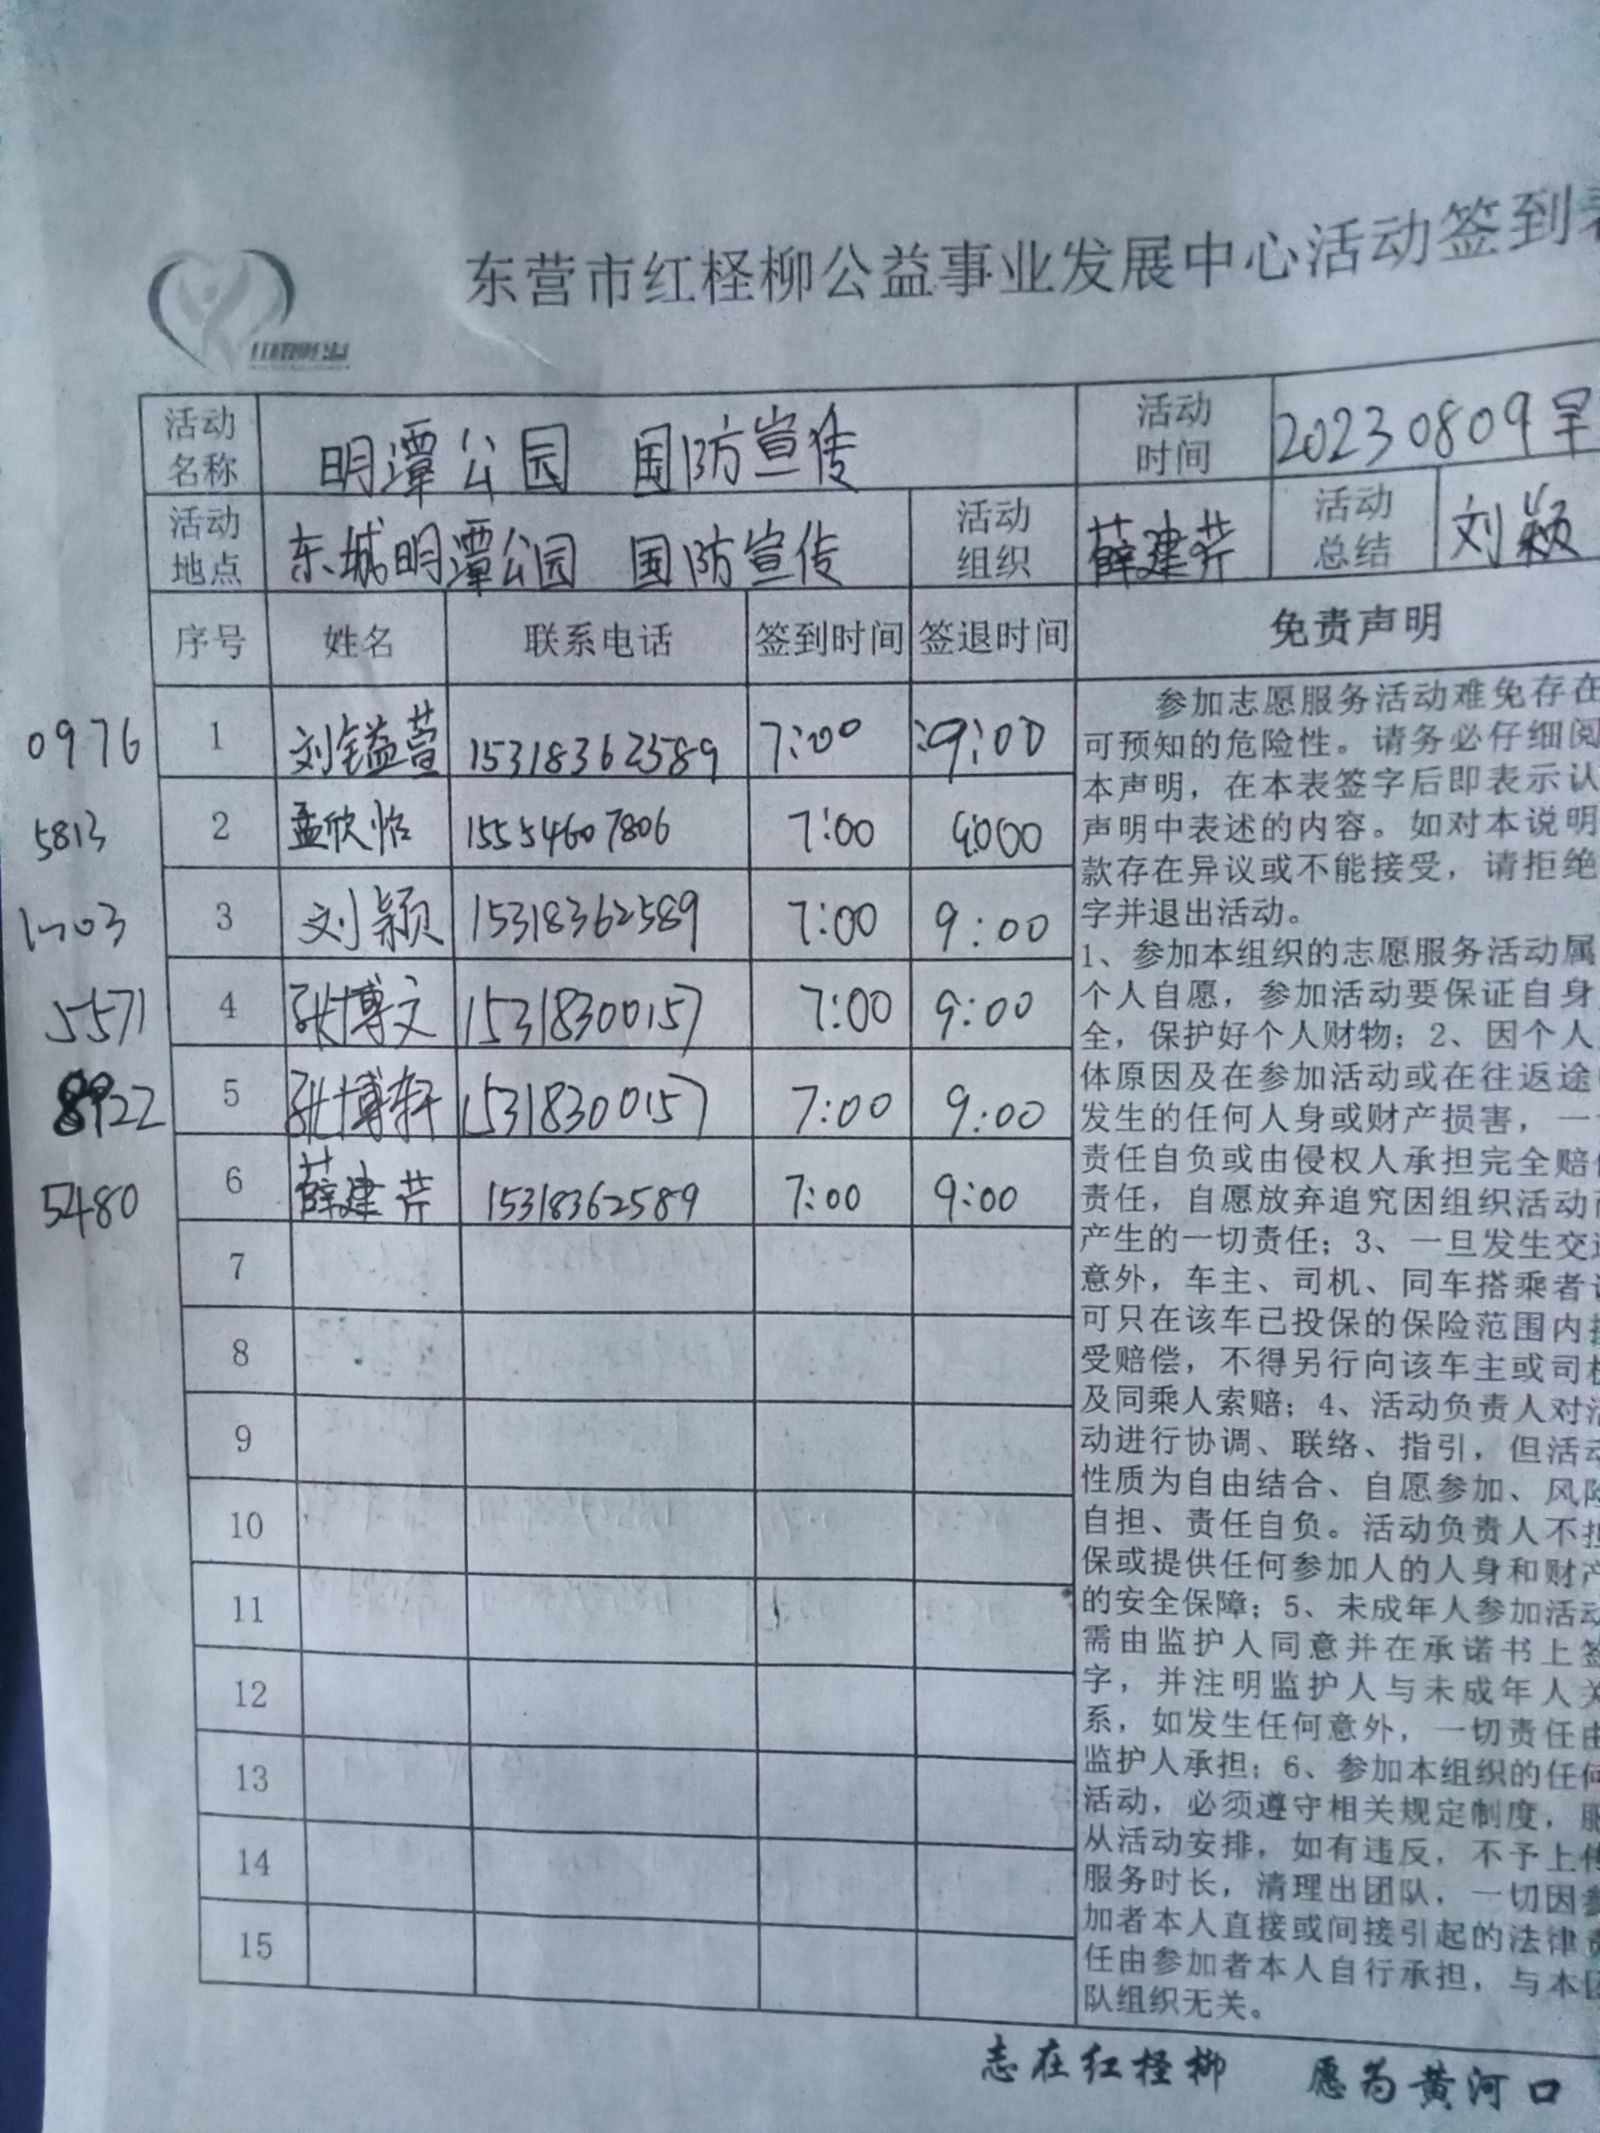 东营市红柽柳公益事业发展中心活动签到表
活动名称 明潭公园 国防宣传 活动时间 20230809早
活动地点 东城明潭公园 国防宣传 活动组织 薛建芹 活动总结 刘颖
序号 姓名 联系电话 签到时间 签退时间 免责声明
0976 1 刘镒萱 15318362589 7:00 9:00
5813 2 孟欣怡 15554607806 7:00
3 刘颖 15318362589 7:00 9:00
5571 4 张博文 15318300157 7:00 9:00
8922 5 张博轩 15318300157 7:00 9:00
5480 6 薛建芹 15318362589 7:00 9:00
7
8
9
10
11
12
13
14
15
参加志愿服务活动难免存在
可预知的危险性。请务必仔细阅
本声明，在本表签字后即表示认
声明中表述的内容。如对本说明
款存在异议或不能接受，请拒绝
字并退出活动。
1、参加本组织的志愿服务活动属
个人自愿，参加活动要保证自身
全，保护好个人财物；2、因个人
体原因及在参加活动或在往返途
发生的任何人身或财产损害，一
责任自负或由侵权人承担完全赔
责任，自愿放弃追究因组织活动
产生的一切责任；3、一旦发生交
意外，车主、司机、同车搭乘者
可只在该车已投保的保险范围内
受赔偿，不得另行向该车主或司
及同乘人索赔；4、活动负责人对
动进行协调、联络、指引，但活动
性质为自由结合、自愿参加、风险
自担、责任自负。活动负责人不担
保或提供任何参加人的人身和财产
的安全保障；5、未成年人参加活动
需由监护人同意并在承诺书上签
字，并注明监护人与未成年人关
系，如发生任何意外，一切责任由
监护人承担；6、参加本组织的任何
活动，必须遵守相关规定制度，服
从活动安排，如有违反，不予上传
服务时长，清理出团队，一切因参
加者本人直接或间接引起的法律责
任由参加者本人自行承担，与本团
队组织无关。
志在红柽柳 愿为黄河口